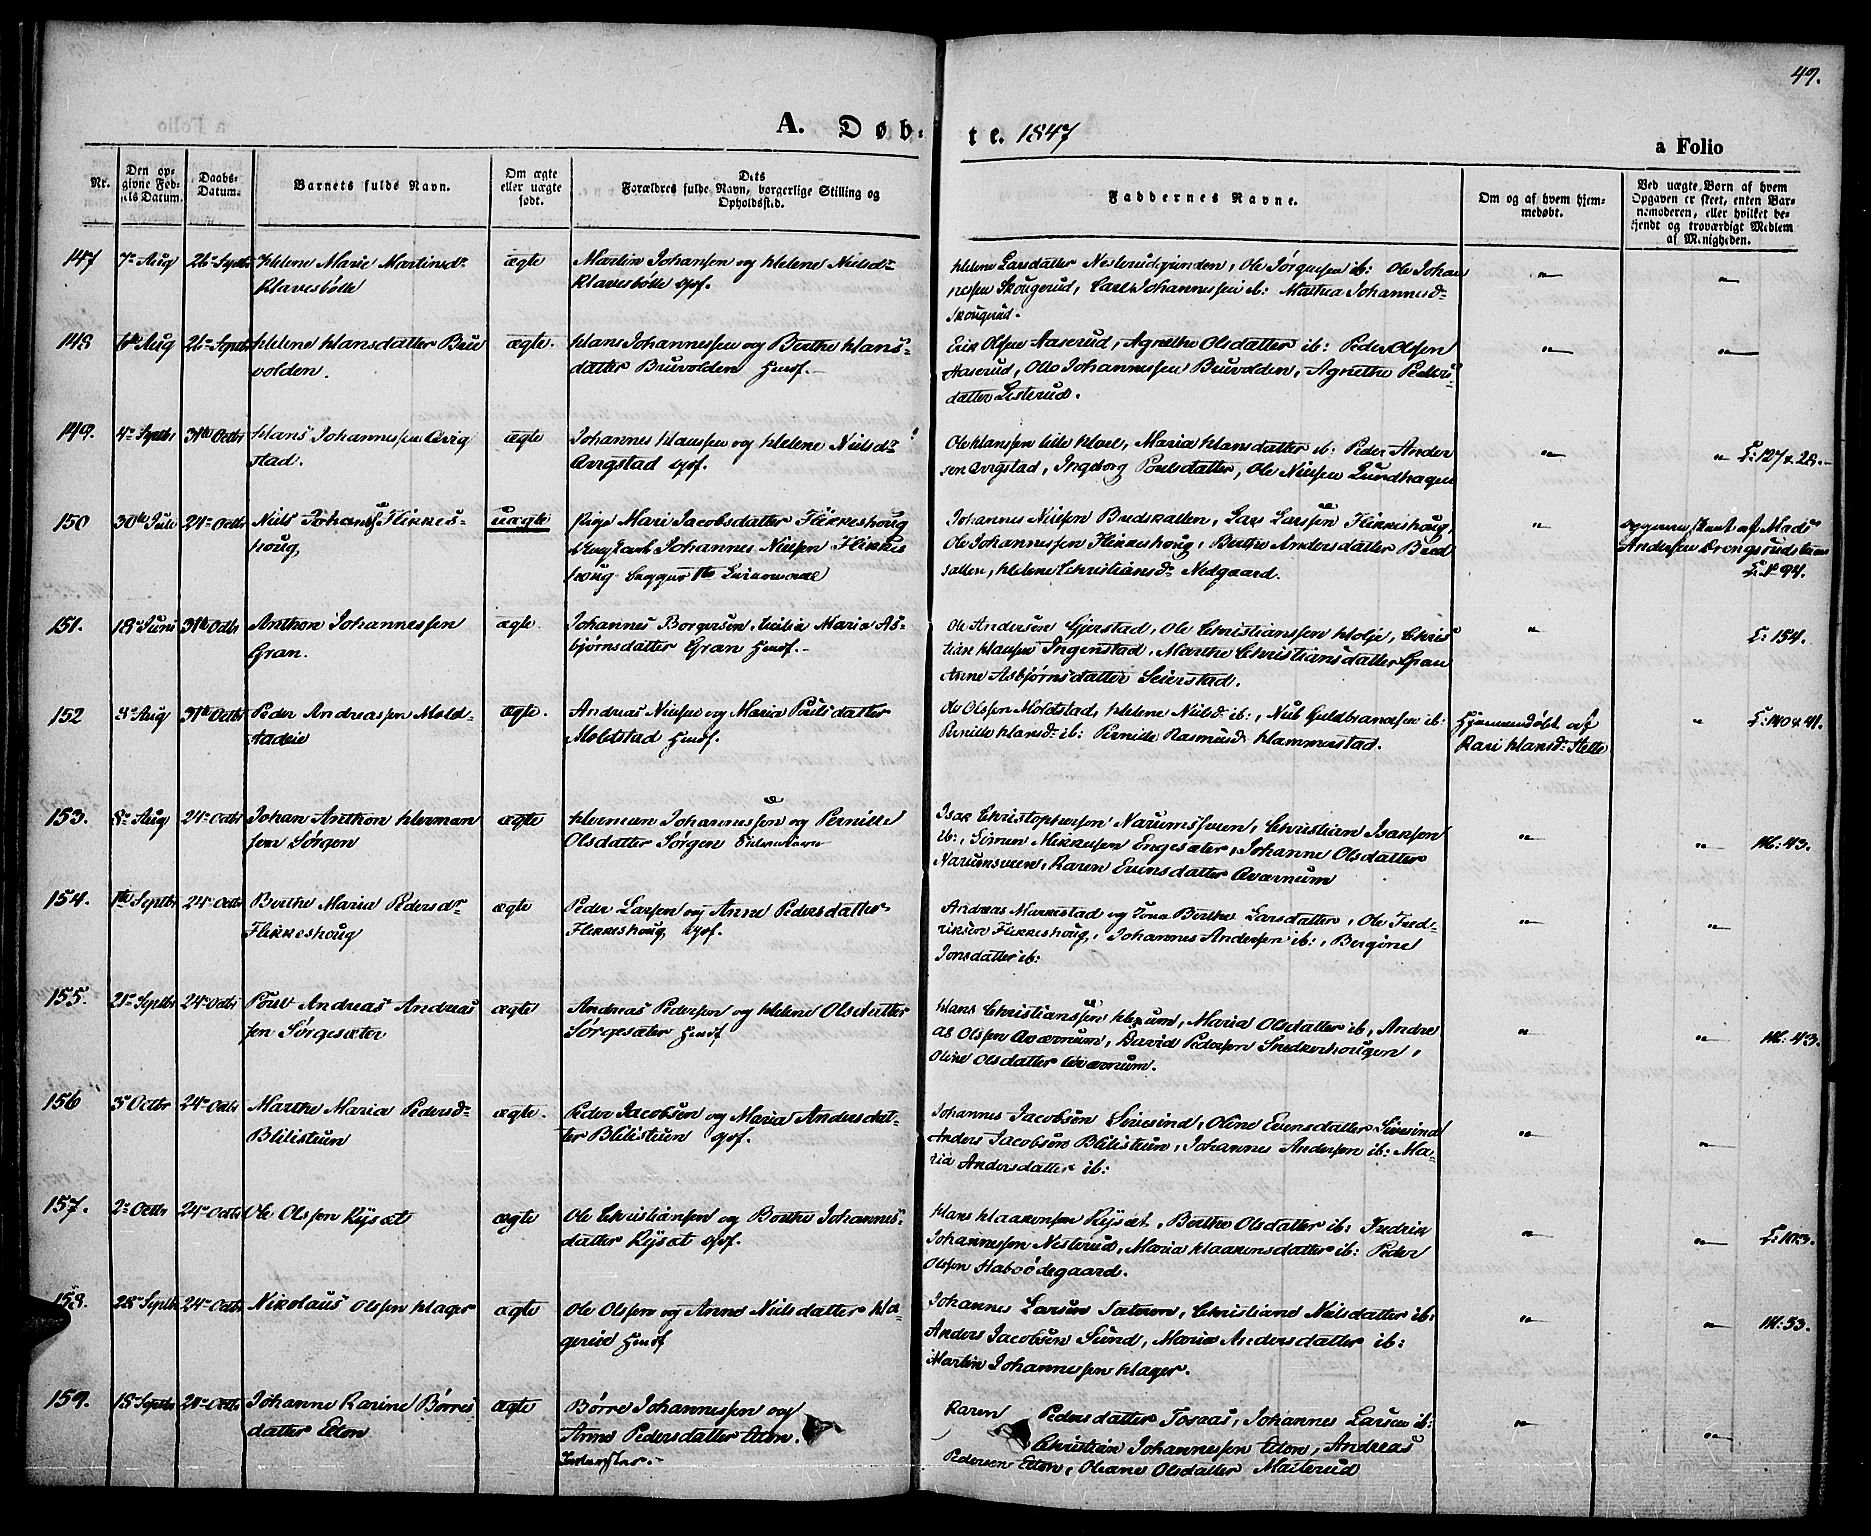 49.
A. Døb-
te. 1847
a Folio
Nr.
Den op-
givne Fød-
sels Datum.
Daabs-
Datum.
Barnets fulde Navn.
Om ægte
eller uægte
født.
Dets
Forældres fulde Navn, borgerlige Stilling og
Opholdssted.
Faddernes Navne.
Om og af hvem hjem-
medøbt.
Ved uægte Børn af hvem
Opgaven er skeet, enten Bar-
nemoderen, eller hvilket be-
kjendt og troværdigt Medlem
af Menigheden.
147 7de Aug 26de Septbr Helene Marie Martinsdr ægte Martin Johansen og Helene Nielsdr
Klavesbølle
Klavesbølle
Helene Larsdatter Nesterudgrinden, Ole Jørgensen ib: Ole Johan
nessen Skougerud, Carl Johannessen ib: Mathea Johannesdr
Skougerud.
148 6te Aug 26de Septbr Helene Hansdatter Bru ægte. Hans Johannessen og Berthe Hans-
volden.
datter Bruvolden Huusf.
Erik Olsen Aaserud, Agnethe Olsdatter ib: Peder Olssen
Aaserud, Olle Johannessen Bruvolden, Agnethe Peders-
datter Lesterud.
149. 4de Septbr 31te Octbr Hans Johannessen Qvig ægte Johannes Hanssen og Helene Nielsdr
stad.
Qvigstad
Ole Hanssen lille Hoel, Maria Hansdatter ib: Peder Ander
sen Qvigstad, Ingeborg Poulsdatter, Ole Nielsen Lundhagen
L: 127 & 28.
150 30te Juli 24de Octbr Niels Johans. Flikkes- uægte Pige Mari Jacobsdatter Flikkeshoug
houg
Ungkarl Johannes Nielsen Flikkes
houg
Johannes Nielsen Budskallen, Lars Larssen Flikkeshoug
Ole Johannessen Flikkeshoug, Berthe Andersdatter Bud
skallen, Helene Christiansdr Nedgaard.
af Mads
Andersen
L: 94.
151. 18de Juni 31te Octbr Anthon Johannessen ægte Johannes Borgersen, Maria As-
Gran.
bjørnsdatter Gran Huusf.
Ole Andersen Gjerstad, Ole Christianssen Holje, Chris
tian Hansen Ingenstad, Marthe Christiansdatter Gran
Anne Asbjørnsdatter Seierstad.
L: 154.
152 8de Aug 31te Octbr Peder Andreassen Mold- ægte. Andreas Nielsen og Maria Poulsdatter
stadeie
Moldstad Huusf.
Ole Olssen Moldstad, Helene Nielsdr ib:, Niels Guldbrandsen ib:
Pernille Hansdr ib: Pernille Rasmusdr Hammerstad.
Hjemmedøbt af
Kari Hansdr
L: 140 & 41.
153. 8de Aug 24de Octbr Johan Anthon Herman ægte Herman Johannessen og Pernille
sen Sørgen
Olsdatter Sørgen
Isak Christophersen Narumsveen, Christian Isaksen
ib:, Simen Mikkelsen Engesæter, Johanne Olsdatter
Narumsveen, Karen Evensdatter Qværnum
M: 43.
154. 1te Septbr 24de Octbr Berthe Maria Pedersdr ægte Peder Larsen og Anne Pedersdatter
Flikkeshoug
Flikkeshoug
Andreas Markestad og Berthe Larsdatter, Ole Fred-
riksen Flikkeshoug, Johannes Andersen ib:, Bergine
Jonsdatter ib:
155. 21de Septbr 24de Octbr Poul Andreas Andreas ægte Andreas Pedersen og Helene Olsdatter
sen Sørgesæter
Sørgesæter Huusf
Hans Christianssen, Maria Olsdatter ib, Andre
as Olssen Qværnum, David Pedersen Snedkerhougen,
Oline Olsdatter Qværnum.
M: 43.
156 3de Octbr 24de Octbr Marthe Maria Pedersdr ægte. Peder Jacobsen og Maria Andersdat-
Blilistuen
ter Blilistuen
Johannes Jacobsen Sivesind, Oline Evensdatter Sivesind
Anders Jacobsen Blilistuen, Johannes Andersen ib: Ma-
ria Andersdatter ib:
157. 2de Octbr 24de Octbr Ole Olssen Rysæt ægte Ole Christiansen og Berthe Johannes-
datter Rysæt
Hans Haakensen Rysæt, Berthe Olsdatter ib: Fredrik
Johannessen Nesterud, Maria Haakensdatter ib: Peder
Olssen Stabødegaard.
L: 103.
158. 28de Septbr 24de Octbr Nikolaus Olssen Hager ægte Ole Olssen og Anne Nielsdatter Ha-
gereie Huusf
Johannes Larsen Satrum, Christiane Nielsdatter ib:
Anders Jacobsen Sund, Maria Andersdatter ib:
Martin Johannessen Hager.
M: 53.
159. 18de Septbr 24de Octbr Johanne Karine Børres ægte Børre Johannessen og
datter Eton
Anne Pedersdatter Eton.
Karen Pedersdatter Tosaas, Johannes Larsen ib:
Christian Johannessen Eton, Andreas
Pedersen Eton, Oleane Olsdatter Maiterud